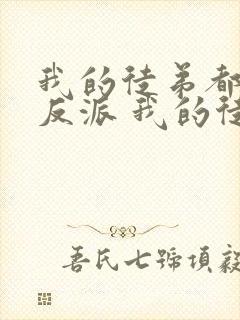 我的徒弟都
反派 我的徒
吾氏七號項毅